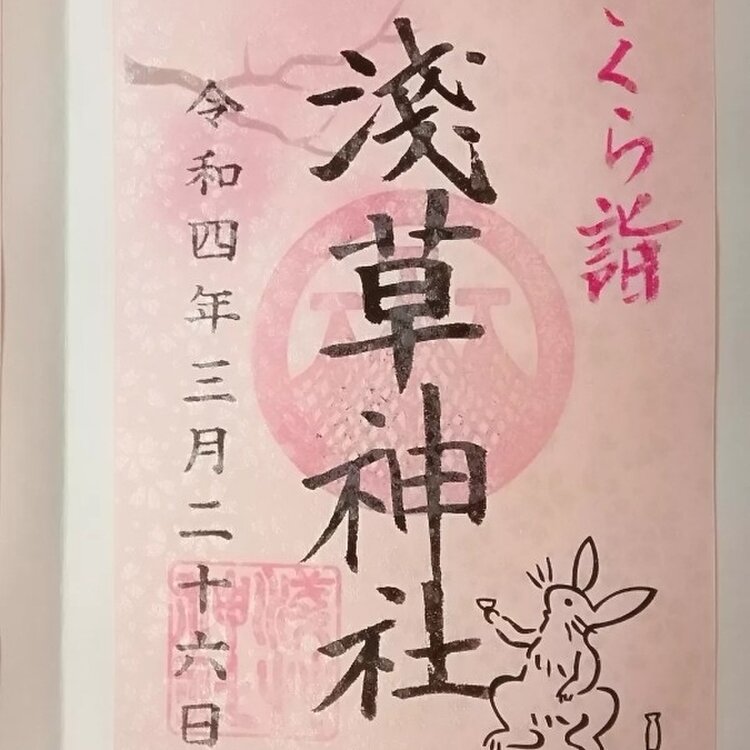 くら詣
淺草神社
令和四年三月二十六日